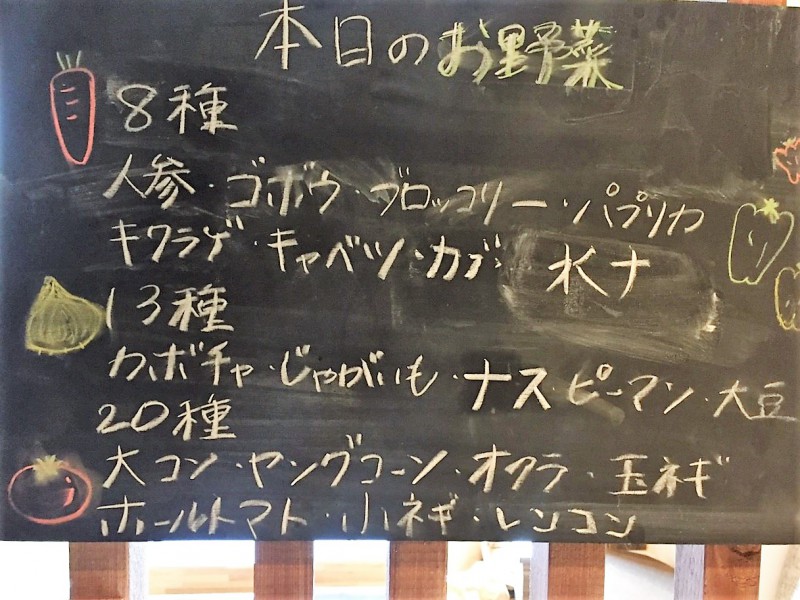 本日のお野菜
8種
人参・ゴボウ・ブロッコリー・パプリカ
キクラゲ・キャベツ・カブ 水ナ
13種
カボチャ・じゃがいも・ナス・ピーマン・大豆
20種
大コン・ヤングコーン・オクラ・玉ネギ
ホールトマト・小ネギ・レンコン